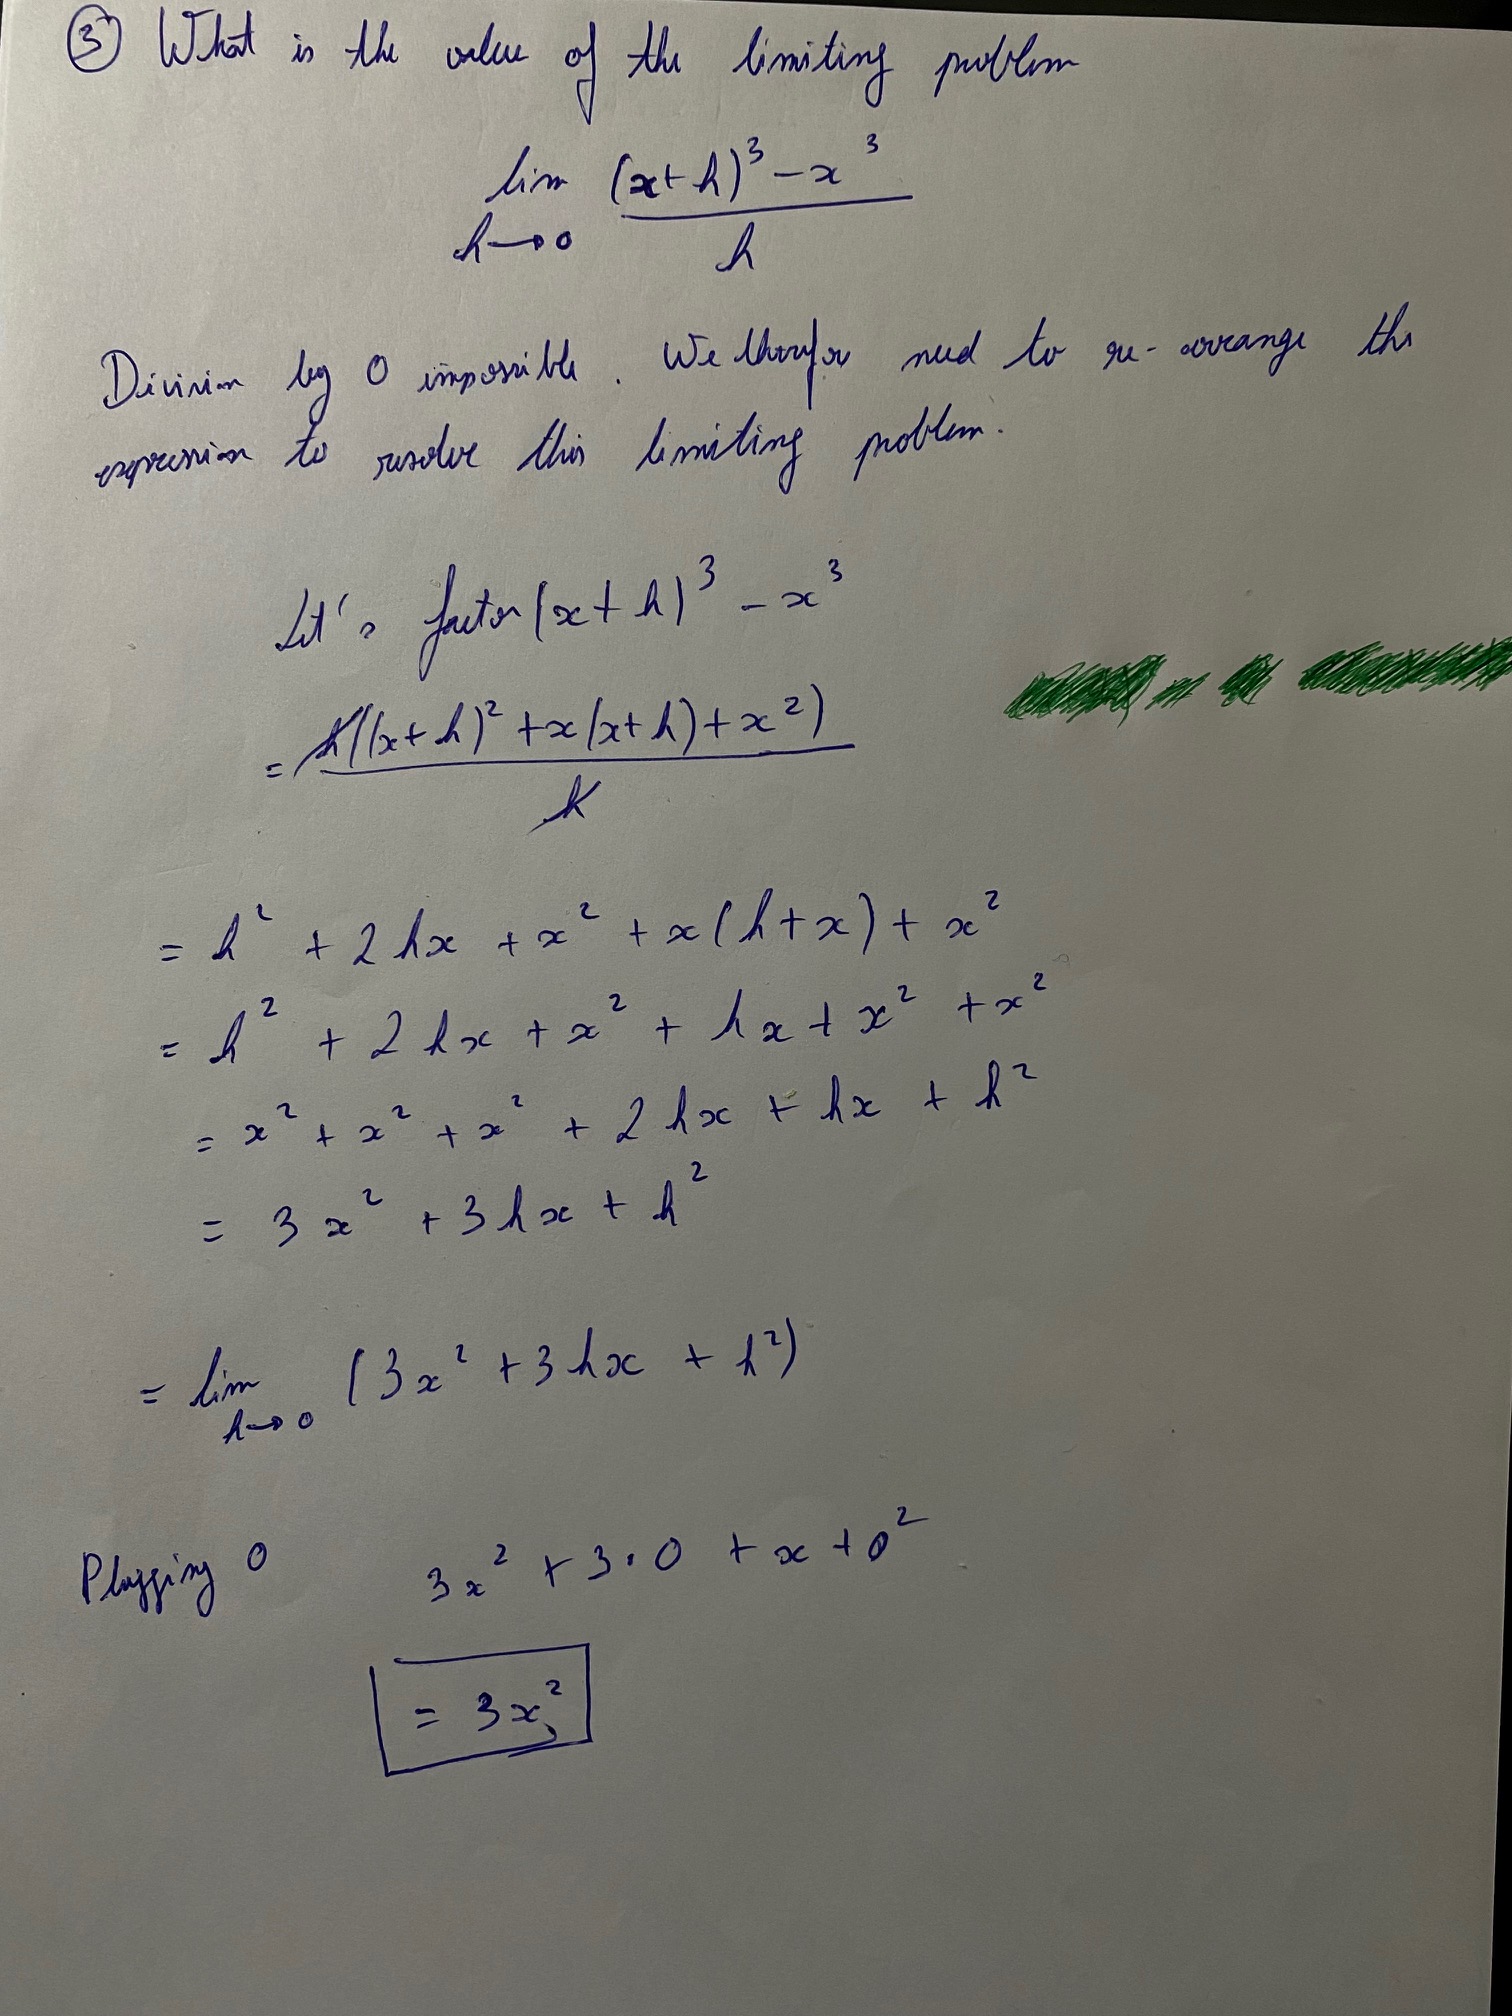 ③ What is the value of the limiting problem
lim (x+h)³ − x³
h→0 h
Division by 0 impossible. We therefor need to re-arrange the
expression to resolve this limiting problem.
Let's factor (x+h)³ − x³
= h((x+h)² + x(x+h) + x²)
h
= h² + 2hx + x² + x(h+x) + x²
= h² + 2hx + x² + hx + x² + x²
= x² + x² + x² + 2hx + hx + h²
= 3x² + 3hx + h²
= lim (3x² + 3hx + h²)
h→0
Plugging 0 3x² + 3·0 + x + 0²
= 3x²